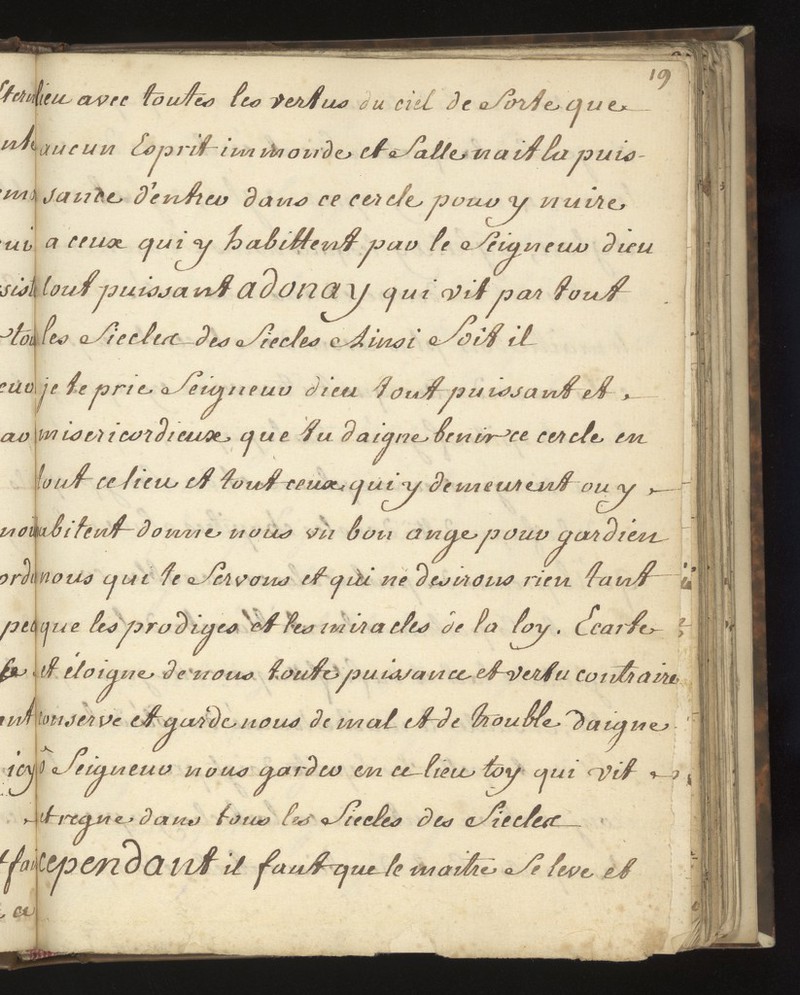 19
lieu avec toutes les vertus du ciel de Sorte que
aucun Esprit immonde et Salle nait la puis-
sance d'entrer dans ce cercle pour y nuire
a ceux qui y habittent par le Seigneur dieu
tout puissant adonay qui vit par tout
les Siecles des Siecles Ainsi Soit il
je te prie Seigneur dieu tout puissant et
misericordieux que tu daigne benir ce cercle en
tout ce lieu et tout ceux qui y demeurent ou y
abitent donne nous un bon ange pour gardien
nous qui te Servons et qui ne desirons rien tant
que les prodiges et les miracles de la loy. Ecarte
et éloigne de nous toute puissance et vertu contraire
conserve et garde nous de mal et de trouble Daigne
ô Seigneur nous garder en ce lieu toy qui vit
et regne dans tous les Siecles des Siecles
cependant il faut que le maitre Se leve et